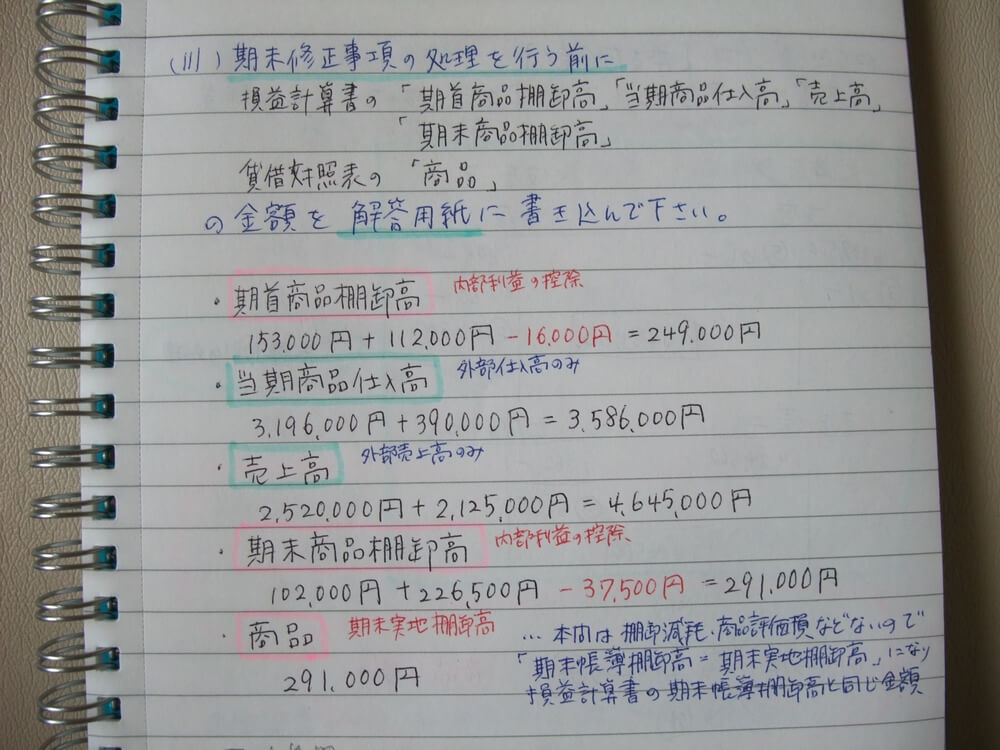 (III) 期末修正事項の処理を行う前に
損益計算書の「期首商品棚卸高」「当期商品仕入高」「売上高」
「期末商品棚卸高」
貸借対照表の「商品」
の金額を解答用紙に書き込んで下さい。
・期首商品棚卸高 内部利益の控除
153,000円 + 112,000円 - 16,000円 = 249,000円
・当期商品仕入高 外部仕入高のみ
3,196,000円 + 390,000円 = 3,586,000円
・売上高 外部売上高のみ
2,520,000円 + 2,125,000円 = 4,645,000円
・期末商品棚卸高 内部利益の控除、
102,000円 + 226,500円 - 37,500円 = 291,000円
・商品 期末実地棚卸高
291,000円
… 本問は棚卸減耗・商品評価損などないので
「期末帳簿棚卸高 = 期末実地棚卸高」になり
損益計算書の期末帳簿棚卸高と同じ金額